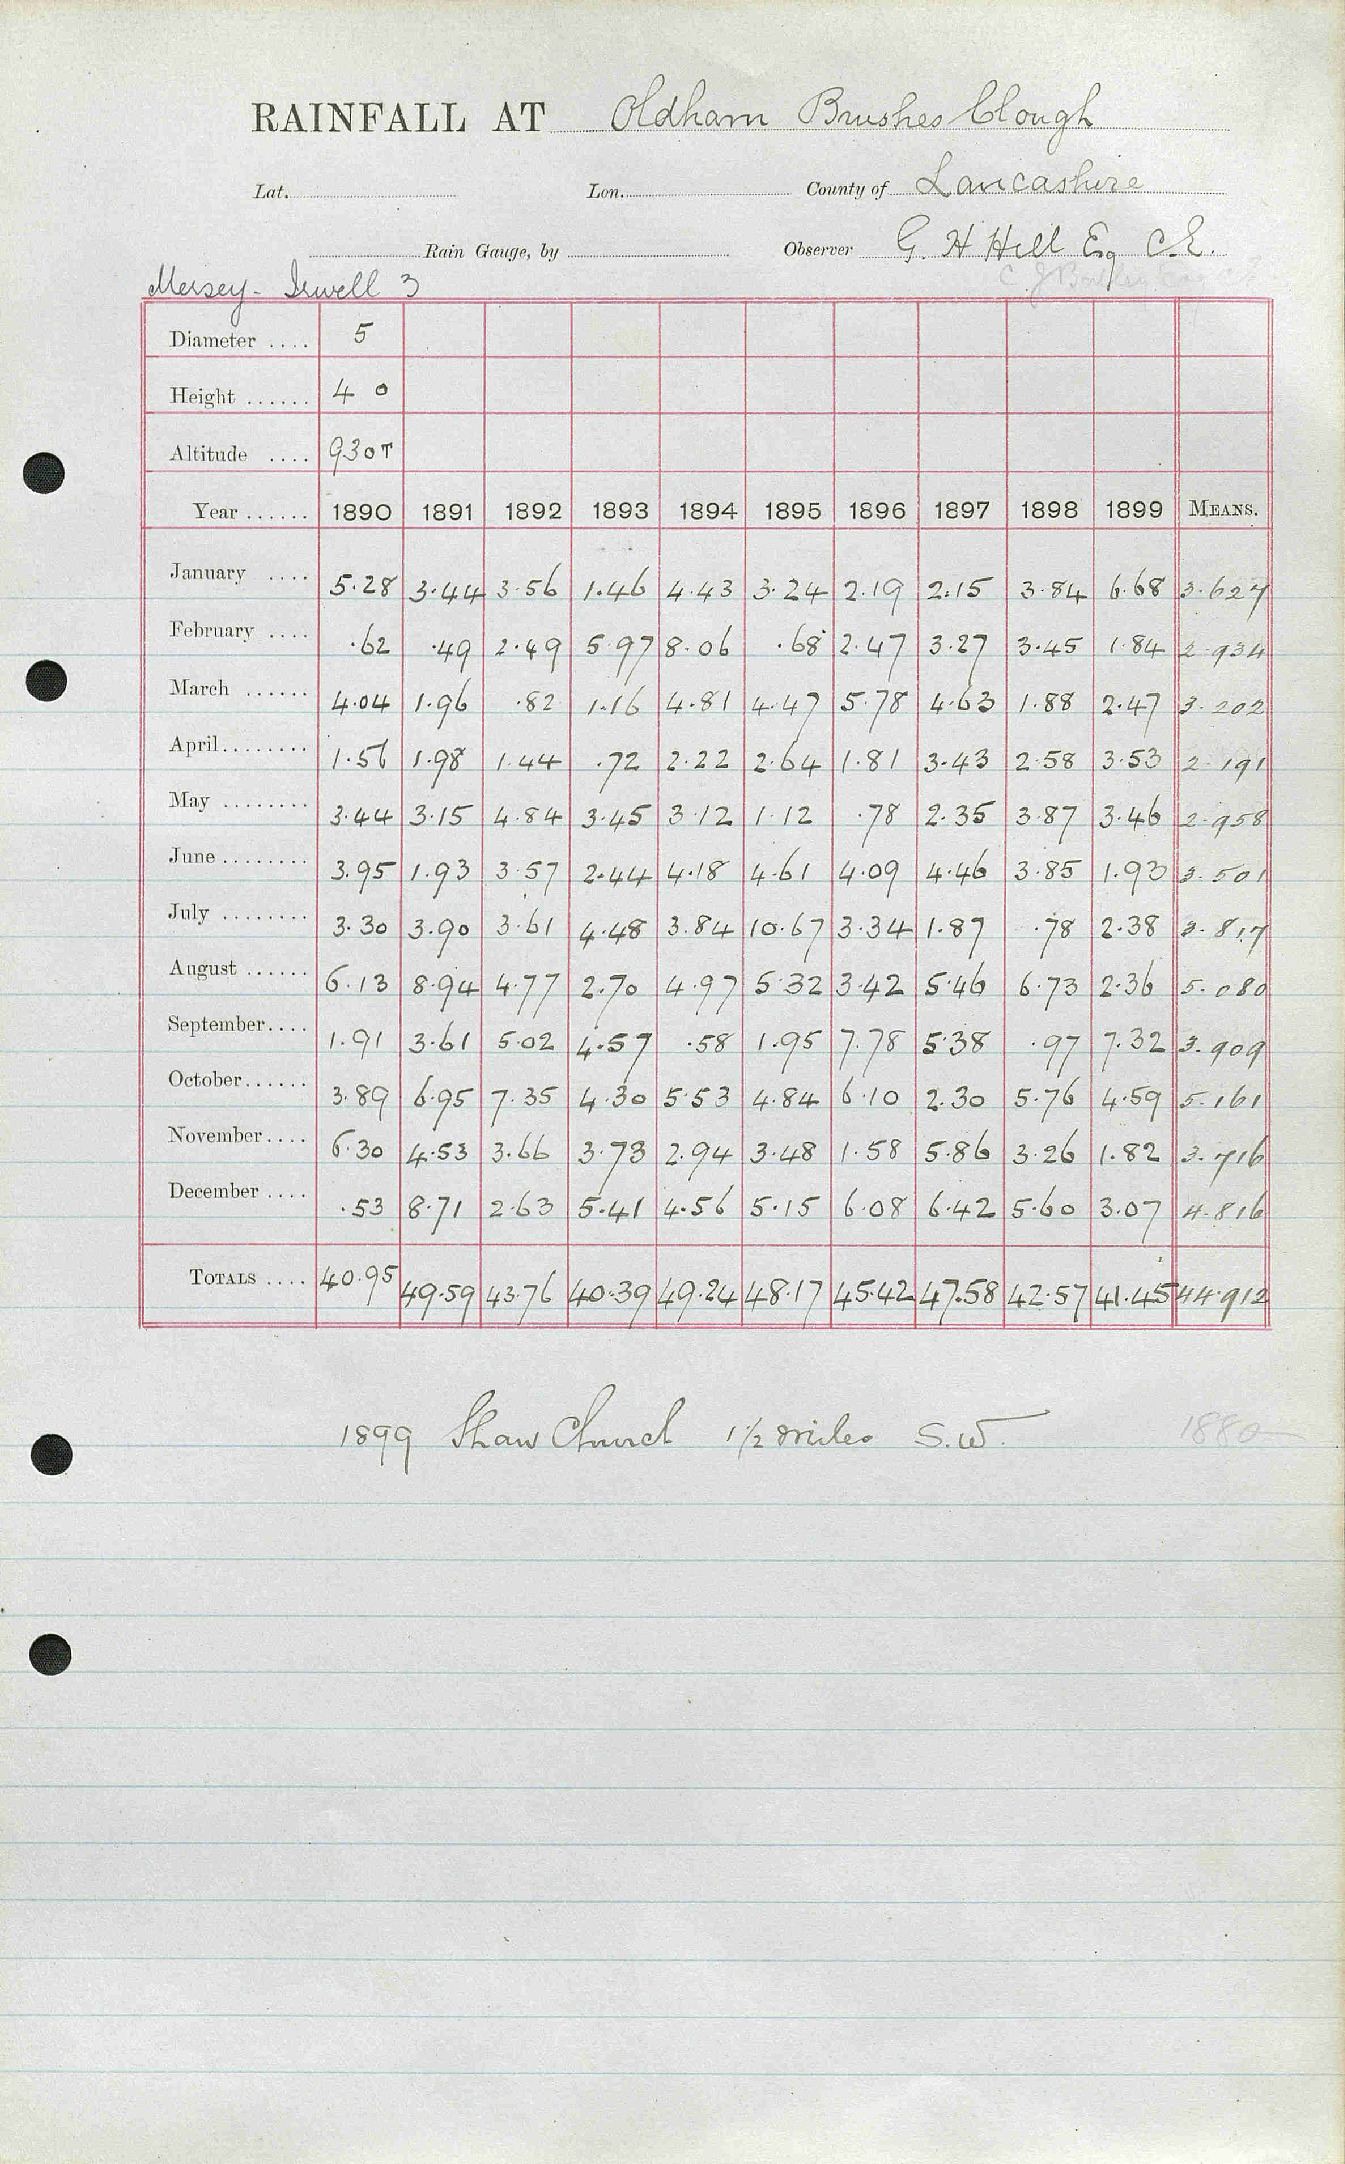 RAINFALL AT Oldham Brushes Clough
Lat. Lon. County of Lancashire
Rain Gauge, by Observer G. H Hill Esq C.E.
Mersey - Irwell 3
Diameter .... 5
Height ...... 4 0
Altitude .... 930T
Year ...... 1890 1891 1892 1893 1894 1895 1896 1897 1898 1899 MEANS.
January .... 5.28 3.44 3.56 1.46 4.43 3.24 2.19 2.15 3.84 6.68 3.627
February .... .62 .49 2.49 5.97 8.06 .68 2.47 3.27 3.45 1.84 2.934
March ...... 4.04 1.96 .82 1.16 4.81 4.47 5.78 4.63 1.88 2.47 3.202
April........ 1.56 1.98 1.44 .72 2.22 2.64 1.81 3.43 2.58 3.53 2.191
May ........ 3.44 3.15 4.84 3.45 3.12 1.12 .78 2.35 3.87 3.46 2.958
June ........ 3.95 1.93 3.57 2.44 4.18 4.61 4.09 4.46 3.85 1.93 3.501
July ........ 3.30 3.90 3.61 4.48 3.84 10.67 3.34 1.87 .78 2.38 3.817
August ...... 6.13 8.94 4.77 2.70 4.97 5.32 3.42 5.46 6.73 2.36 5.080
September.... 1.91 3.61 5.02 4.57 .58 1.95 7.78 5.38 .97 7.32 3.909
October...... 3.89 6.95 7.35 4.30 5.53 4.84 6.10 2.30 5.76 4.59 5.161
November.... 6.30 4.53 3.66 3.73 2.94 3.48 1.58 5.86 3.26 1.82 3.716
December .... .53 8.71 2.63 5.41 4.56 5.15 6.08 6.42 5.60 3.07 4.816
TOTALS .... 40.95 49.59 43.76 40.39 49.24 48.17 45.42 47.58 42.57 41.45 44.912
1899 Shaw Church 1 1/2 miles S.W. 1880